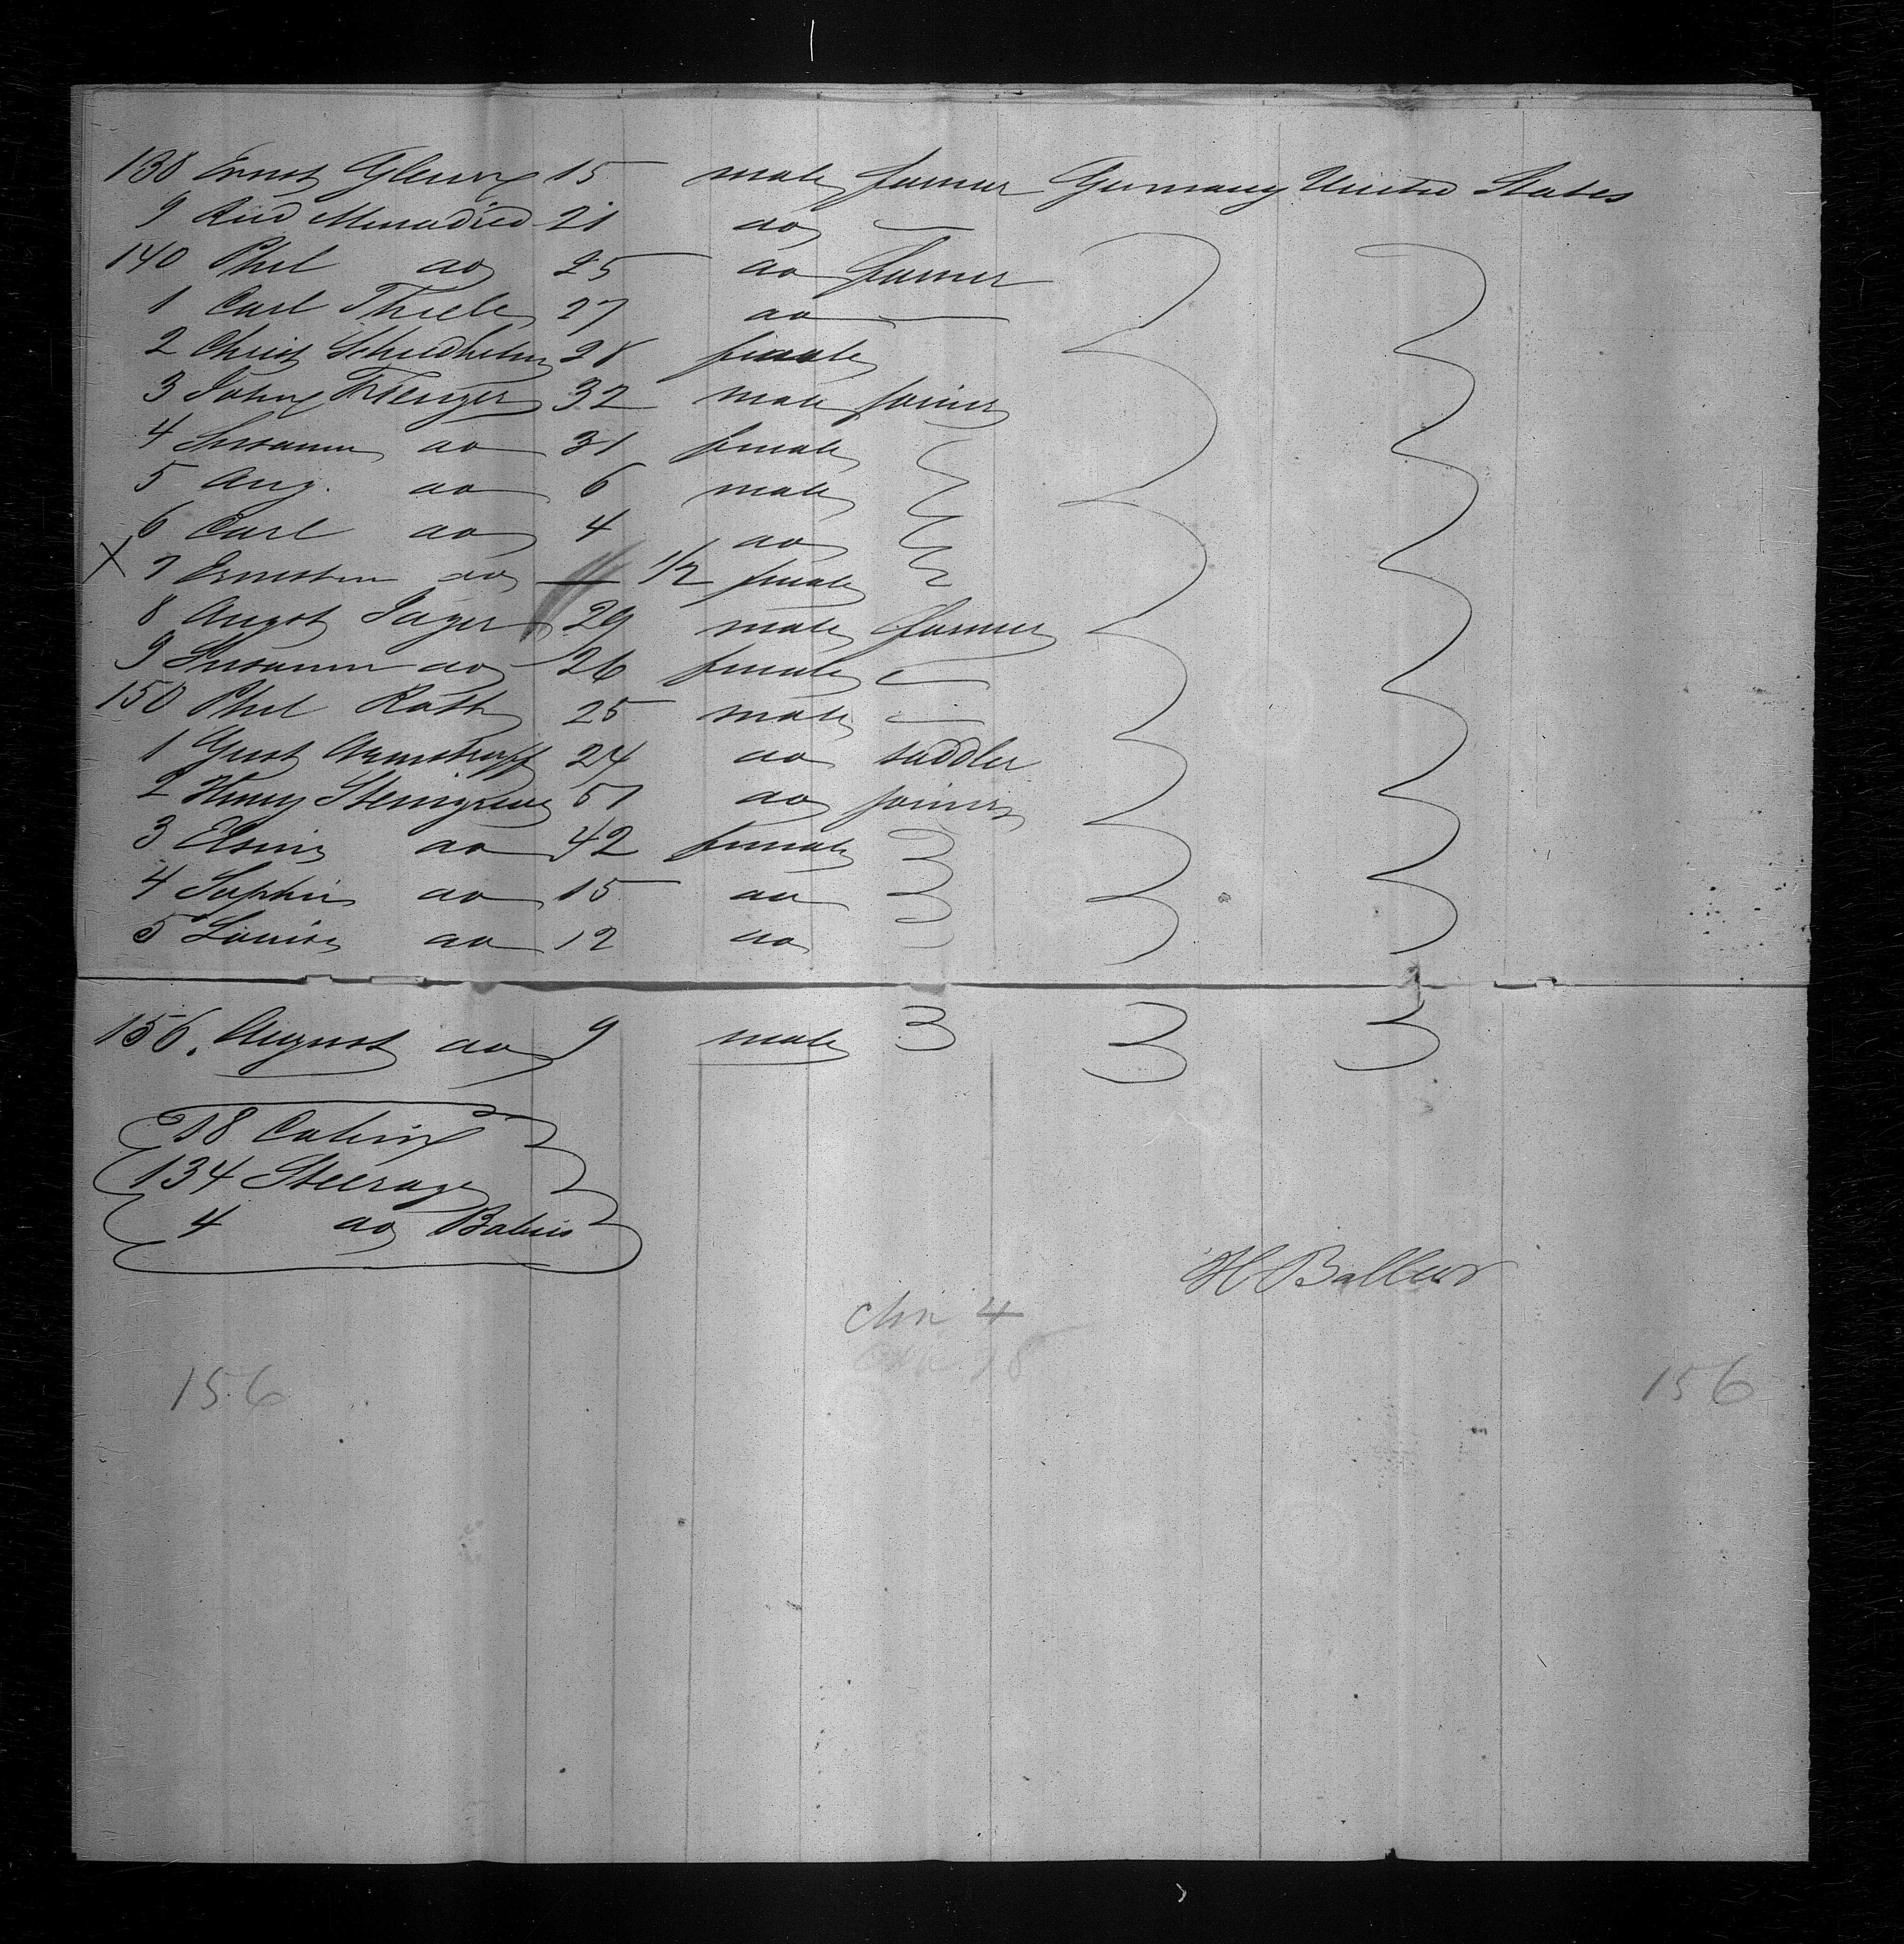 138 Ernst Glenn 15 male farmer Germany United States
9 Rud 21 do —
140 Phil do 25 do farmer
1 Carl Thiele 27 do —
2 Christ 28 female
3 John 32 male joiner
4 Susanne do 31 female
5 Aug. do 6 male
6 Carl do 4 do
X 7 Ernestine do — 1/2 female
8 Augst Jager 29 male farmer
9 Susanne do 26 female —
150 Phil Rath 25 male —
1 Gust 24 do saddler
2 Henry 51 do joiner
3 do 42 female
4 Sophie do 15 do
5 Louise do 12 do
156. August do 9 male
18 Cabin
134 Steerage
4 do Babies
H
4
156
156